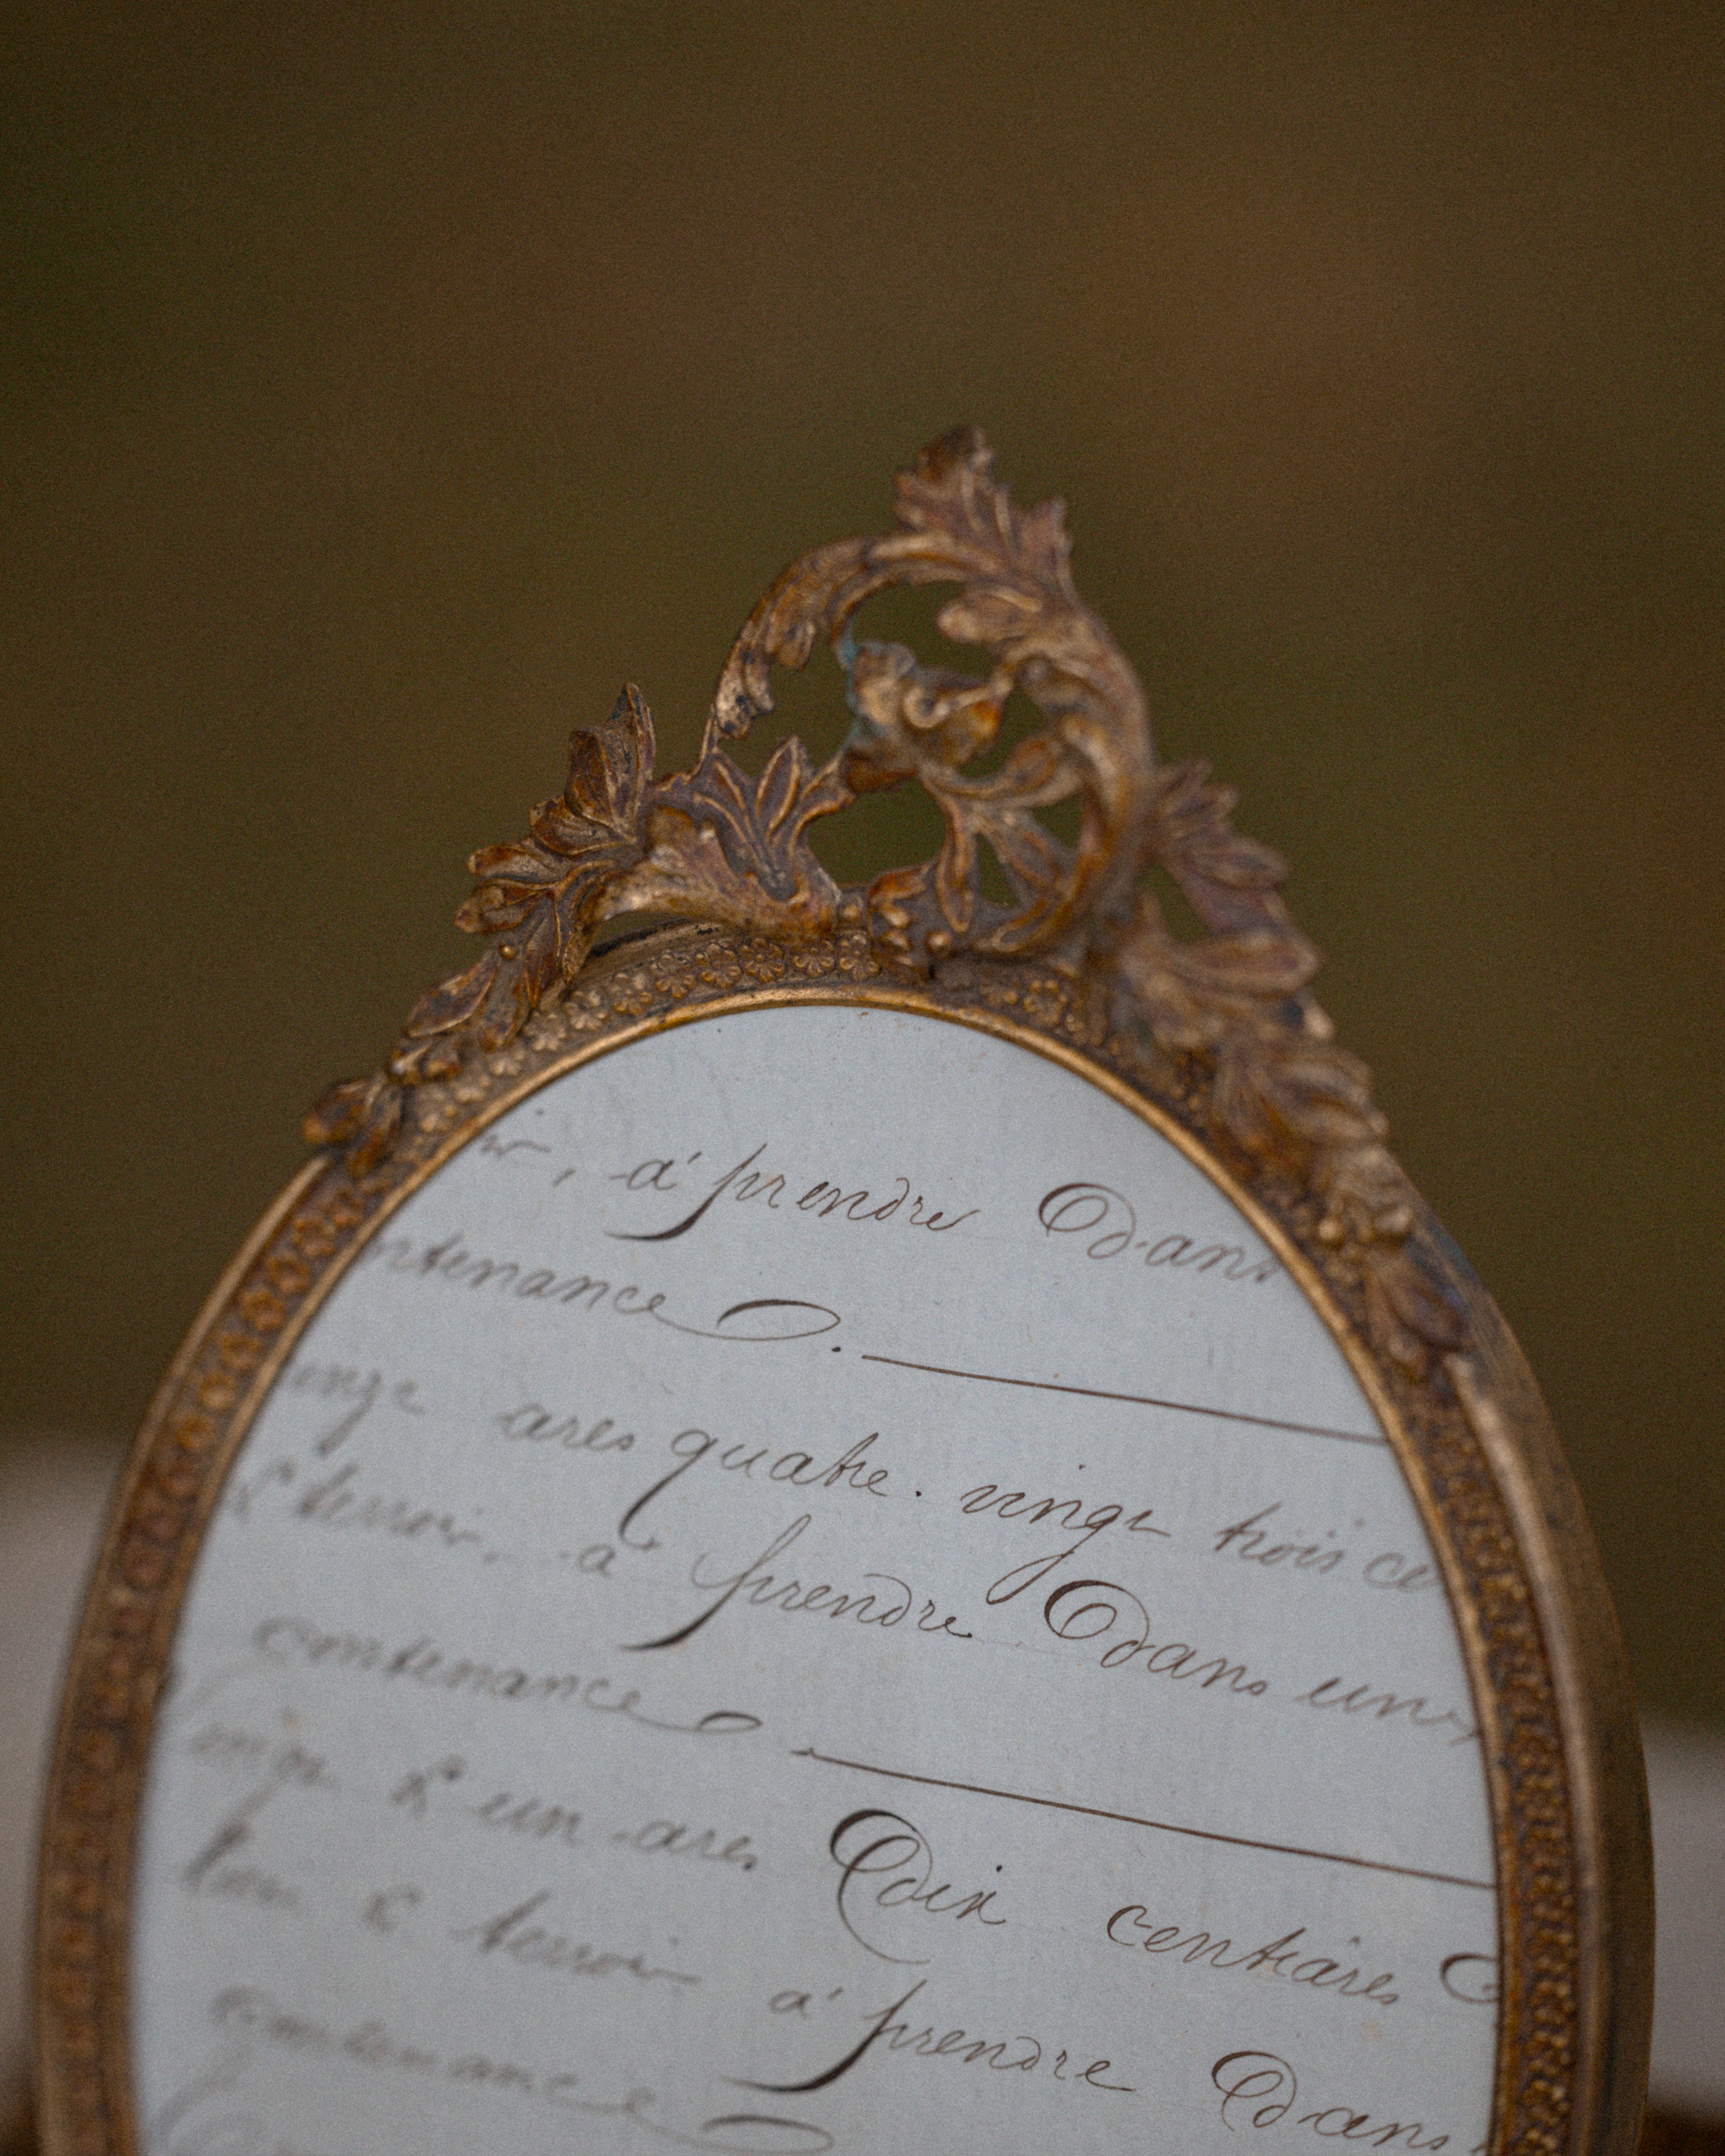 , à prendre Dans
ntenance.
ares quatre. vingt trois ce
terroir, à prendre Dans une
contenance
et un ares Dix centiares
terroir à prendre Dans
contenance